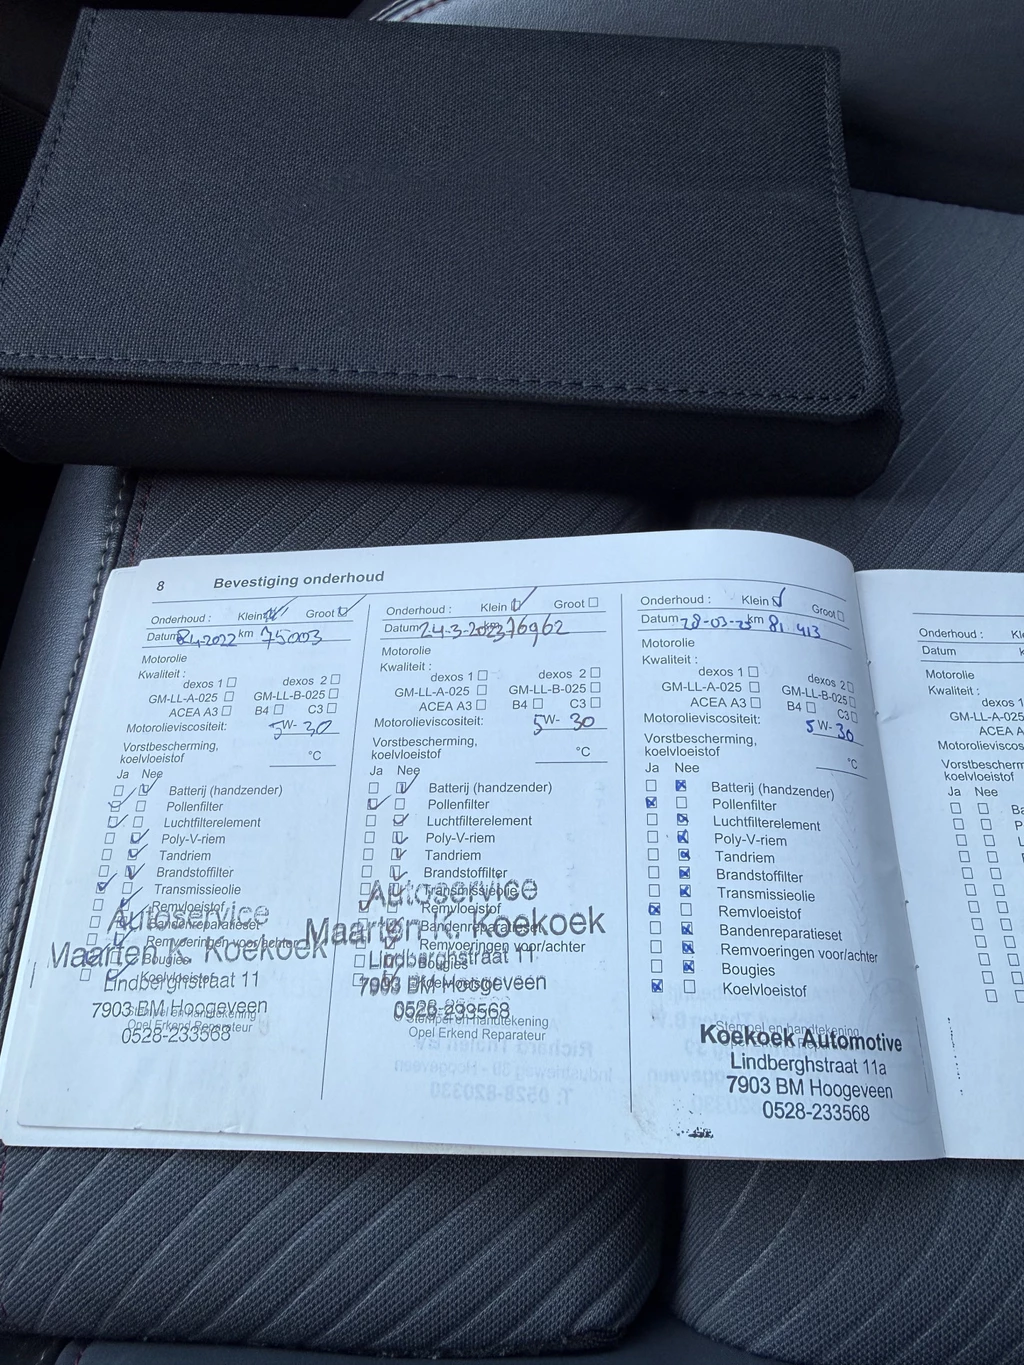 8 Bevestiging onderhoud
Onderhoud : Klein Groot
Datum 8-4-2022 km 75003
Motorolie
Kwaliteit :
dexos 1 dexos 2
GM-LL-A-025 GM-LL-B-025
ACEA A3 B4 C3
Motorolieviscositeit: 5W-30
Vorstbescherming,
koelvloeistof °C
Ja Nee
Batterij (handzender)
Pollenfilter
Luchtfilterelement
Poly-V-riem
Tandriem
Brandstoffilter
Transmissieolie
Remvloeistof
Bandenreparatieset
Remvoeringen voor/achter
Bougies
Koelvloeistof
Stempel en handtekening
Opel Erkend Reparateur
Autoservice
Maarten K. Koekoek
Lindberghstraat 11
7903 BM Hoogeveen
0528-233568
Onderhoud : Klein Groot
Datum 24-3-2023 km 76962
Motorolie
Kwaliteit :
dexos 1 dexos 2
GM-LL-A-025 GM-LL-B-025
ACEA A3 B4 C3
Motorolieviscositeit: 5W-30
Vorstbescherming,
koelvloeistof °C
Ja Nee
Batterij (handzender)
Pollenfilter
Luchtfilterelement
Poly-V-riem
Tandriem
Brandstoffilter
Transmissieolie
Remvloeistof
Bandenreparatieset
Remvoeringen voor/achter
Bougies
Koelvloeistof
Stempel en handtekening
Opel Erkend Reparateur
Autoservice
Maarten K. Koekoek
Lindberghstraat 11
7903 BM Hoogeveen
0528-233568
Onderhoud : Klein Groot
Datum 28-03-25 km 81 413
Motorolie
Kwaliteit :
dexos 1 dexos 2
GM-LL-A-025 GM-LL-B-025
ACEA A3 B4 C3
Motorolieviscositeit: 5W-30
Vorstbescherming,
koelvloeistof °C
Ja Nee
Batterij (handzender)
Pollenfilter
Luchtfilterelement
Poly-V-riem
Tandriem
Brandstoffilter
Transmissieolie
Remvloeistof
Bandenreparatieset
Remvoeringen voor/achter
Bougies
Koelvloeistof
Stempel en handtekening
Koekoek Automotive
Lindberghstraat 11a
7903 BM Hoogeveen
0528-233568
Onderhoud : Kl
Datum
Motorolie
Kwaliteit :
dexos 1
GM-LL-A-025
ACEA A
Motorolieviscos
Vorstbescherm
koelvloeistof
Ja Nee
Ba
P
L